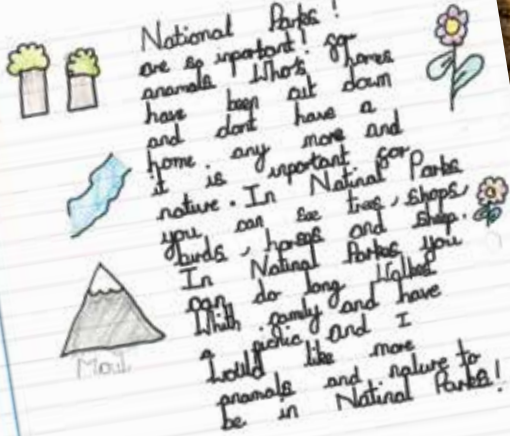 National Parks!
are so inportant! for
anamals Who's homes
have been cut down
and dont have a
home. any more and
it is inportant for
nature. In Natinal Parks
you can see trees, shops,
birds, horses and sheep.
In Natinal Parkes you
can do long Walkes
Whith family and have
a picnic and I
Would like more
anamals and nature to
be in Natinal Parks!